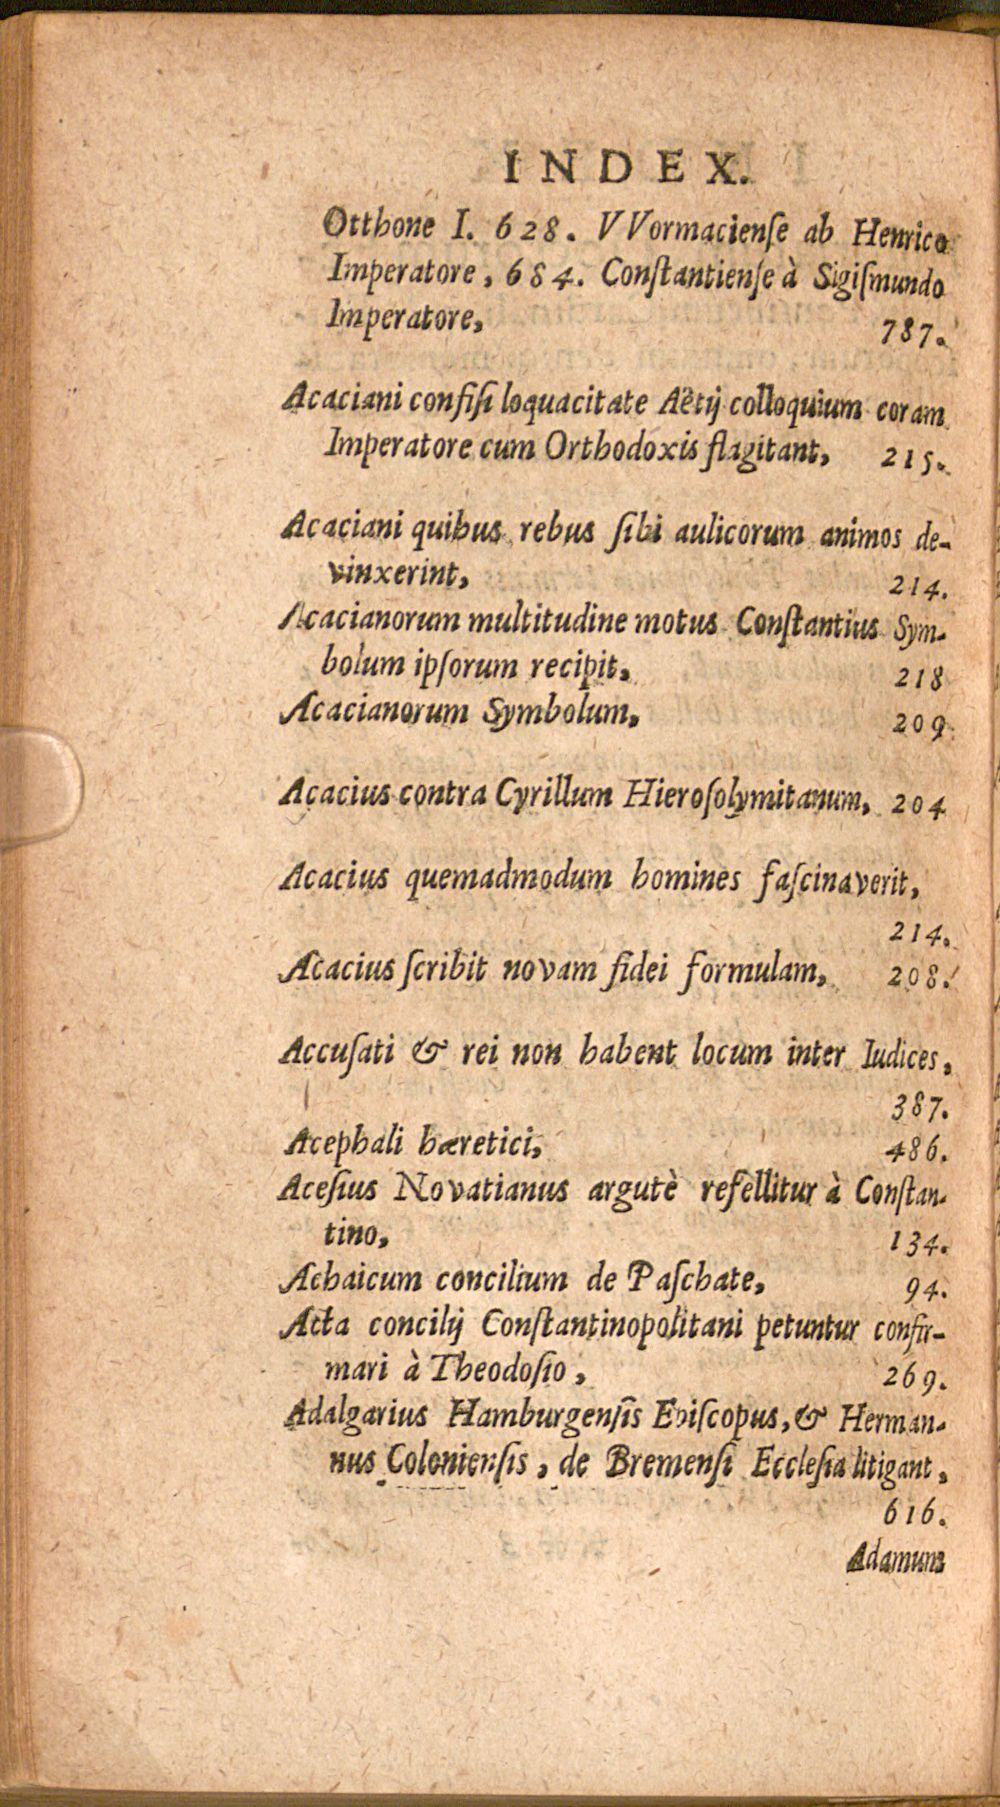 INDEX.
Otthone I. 628. VVormacienſe ab Henrico
Imperatore, 684. Conſtantienſe à Sigiſmundo
Imperatore, 787.
Acaciani confiſi loquacitate Aëtij colloquium coram
Imperatore cum Orthodoxis flagitant, 215.
Acaciani quibus rebus ſibi aulicorum animos de-
vinxerint, 214.
Acacianorum multitudine motus Conſtantius Sym-
bolum ipſorum recipit, 218
Acacianorum Symbolum, 209
Acacius contra Cyrillum Hieroſolymitanum, 204
Acacius quemadmodum homines faſcinaverit,
214.
Acacius ſcribit novam fidei formulam, 208.
Accuſati & rei non habent locum inter Iudices,
387.
Acephali hæretici, 486.
Aceſius Novatianus argutè refellitur à Conſtan-
tino, 134.
Achaicum concilium de Paſchate, 94.
Acta concilij Conſtantinopolitani petuntur confir-
mari à Theodoſio, 269.
Adalgarius Hamburgenſis Epiſcopus, & Herman-
nus Colonienſis, de Bremenſi Eccleſia litigant,
616.
Adamum